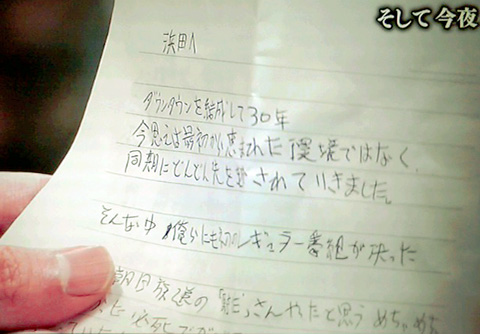 そして今夜
浜田へ
ダウンタウンを結成して30年
今思えば最初から恵まれた環境ではなく、
同期にどんどん先を越されていきました。
そんな中、俺らにも初のレギュラー番組が決った
朝日放送の「
さんやったと思うめちゃめちゃ
必死で